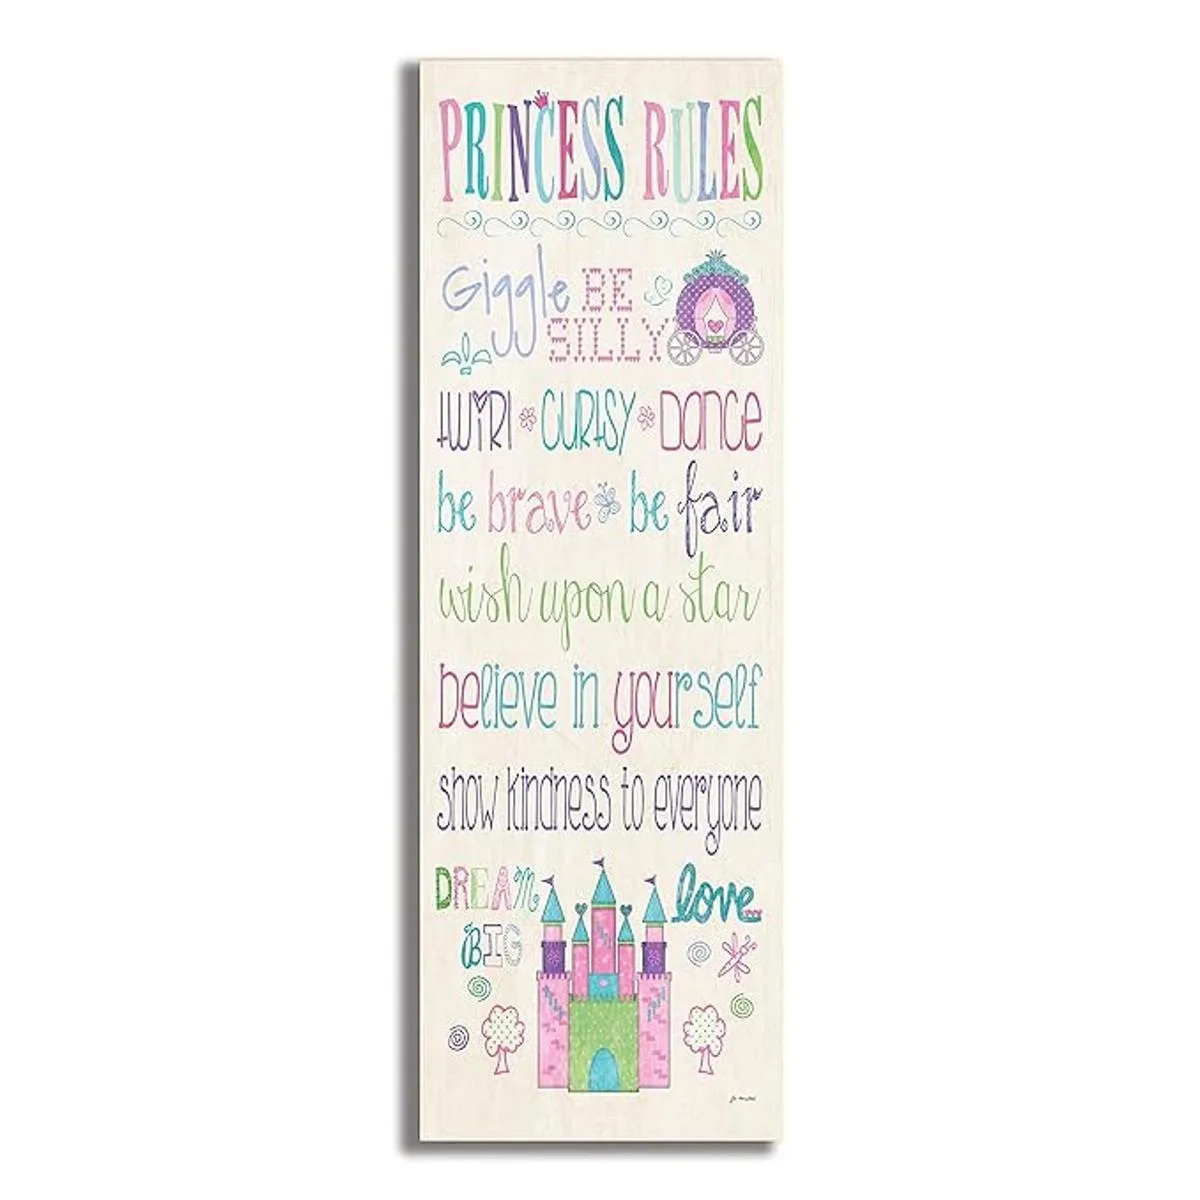 PRINCESS RULES
Giggle BE
SILLY
tWiRl CURtSY DANCE
be brave be fair
wish upon a star
believe in yourself
show kindness to everyone
DREAM love
BIG